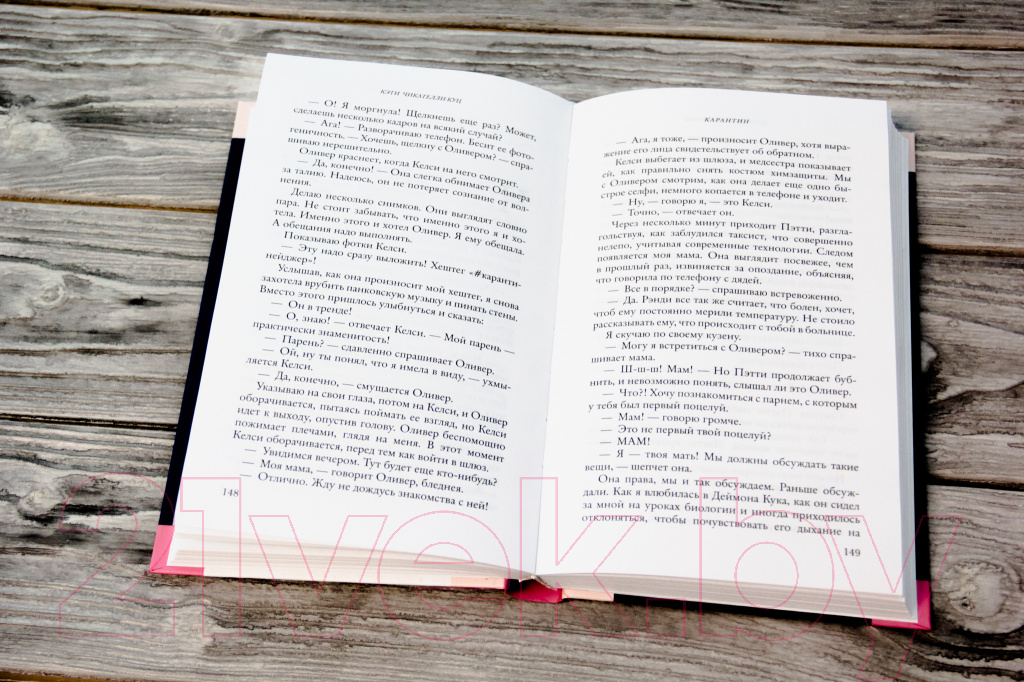 КЭТИ ЧИКАТЕЛЛИ КУЦ
— О! Я моргнула! Щелкнешь еще раз? Может,
сделаешь несколько кадров на всякий случай?
— Ага! — Разворачиваю телефон. Бесит ее фото-
геничность. — Хочешь, щелкну с Оливером? — спра-
шиваю нерешительно.
Оливер краснеет, когда Келси на него смотрит.
— Да, конечно! — Она слегка обнимает Оливера
за талию. Надеюсь, он не потеряет сознание от вол-
нения.
Делаю несколько снимков. Они выглядят словно
пара. Не стоит забывать, что именно этого я и хо-
тела. Именно этого и хотел Оливер. Я ему обещала.
А обещания надо выполнять.
Показываю фотки Келси.
— Эту надо сразу выложить! Хештег «#каранти-
нейджер»!
Услышав, как она произносит мой хештег, я снова
захотела врубить панковскую музыку и пинать стены.
Вместо этого пришлось улыбнуться и сказать:
— Он в тренде!
— О, знаю! — отвечает Келси. — Мой парень —
практически знаменитость!
— Парень? — сдавленно спрашивает Оливер.
— Ой, ну ты понял, что я имела в виду, — ухмы-
ляется Келси.
— Да, конечно, — смущается Оливер.
Указываю на свои глаза, потом на Келси, и Оливер
оборачивается, пытаясь поймать ее взгляд, но Келси
идет к выходу, опустив голову. Оливер беспомощно
пожимает плечами, глядя на меня. В этот момент
Келси оборачивается, перед тем как войти в шлюз.
— Увидимся вечером. Тут будет еще кто-нибудь?
— Моя мама, — говорит Оливер, бледнея.
— Отлично. Жду не дождусь знакомства с ней!
148
КАРАНТИН
— Ага, я тоже, — произносит Оливер, хотя выра-
жение его лица свидетельствует об обратном.
Келси выбегает из шлюза, и медсестра показывает
ей, как правильно снять костюм химзащиты. Мы
с Оливером смотрим, как она делает еще одно бы-
строе селфи, немного копается в телефоне и уходит.
— Ну, — говорю я, — это Келси.
— Точно, — отвечает он.
Через несколько минут приходит Пэтти, разгла-
гольствуя, как заблудился таксист, что совершенно
нелепо, учитывая современные технологии. Следом
появляется моя мама. Она выглядит посвежее, чем
в прошлый раз, извиняется за опоздание, объясняя,
что говорила по телефону с дядей.
— Все в порядке? — спрашиваю встревоженно.
— Да. Рэнди все так же считает, что болен, хочет,
чтоб ему постоянно мерили температуру. Не стоило
рассказывать ему, что происходит с тобой в больнице.
Я скучаю по своему кузену.
— Могу я встретиться с Оливером? — тихо спра-
шивает мама.
— Ш-ш-ш! Мам! — Но Пэтти продолжает буб-
нить, и невозможно понять, слышал ли это Оливер.
— Что?! Хочу познакомиться с парнем, с которым
у тебя был первый поцелуй.
— Мам! — говорю громче.
— Это не первый твой поцелуй?
— МАМ!
— Я — твоя мать! Мы должны обсуждать такие
вещи, — шепчет она.
Она права, мы и так обсуждаем. Раньше обсуж-
дали. Как я влюбилась в Деймона Кука, как он сидел
за мной на уроках биологии и иногда приходилось
отклоняться, чтобы почувствовать его дыхание на
149
21vek.by